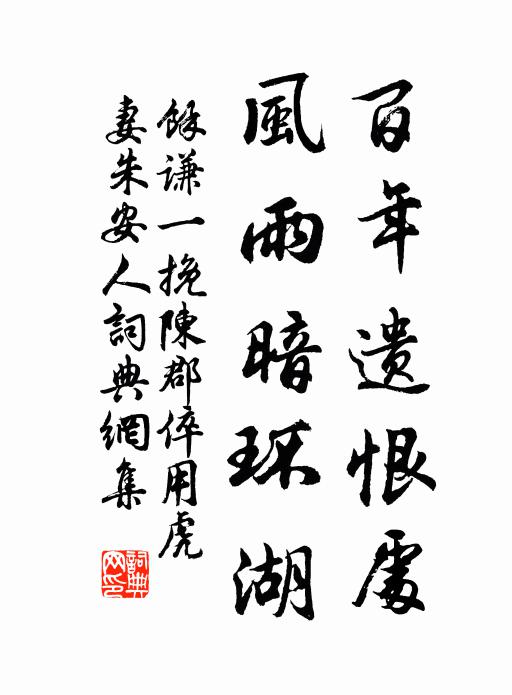 百年遺恨處
風雨暗環湖
餘謙一挽陳郡倅用虎
妻朱安人詞典網集
詞典
网印